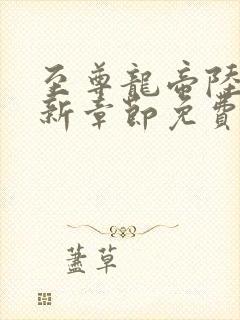 至尊龍帝陸
新章節免費
蓋草